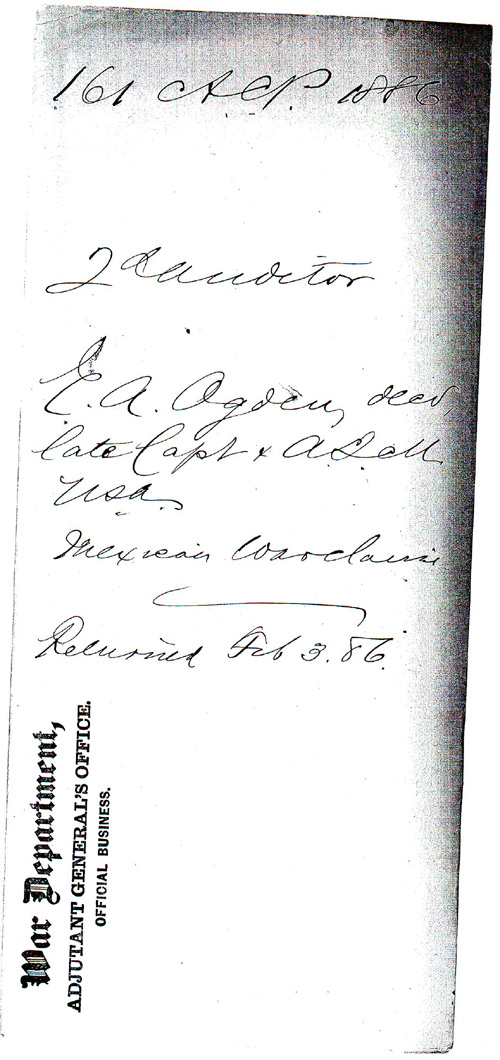 161 A.C.P. 1886
2d Auditor
E. A. Ogden, decd,
late Capt & A.Q.M.
USA.
Mexican War claim
Returned Feb 3. 86.
War Department,
ADJUTANT GENERAL'S OFFICE.
OFFICIAL BUSINESS.